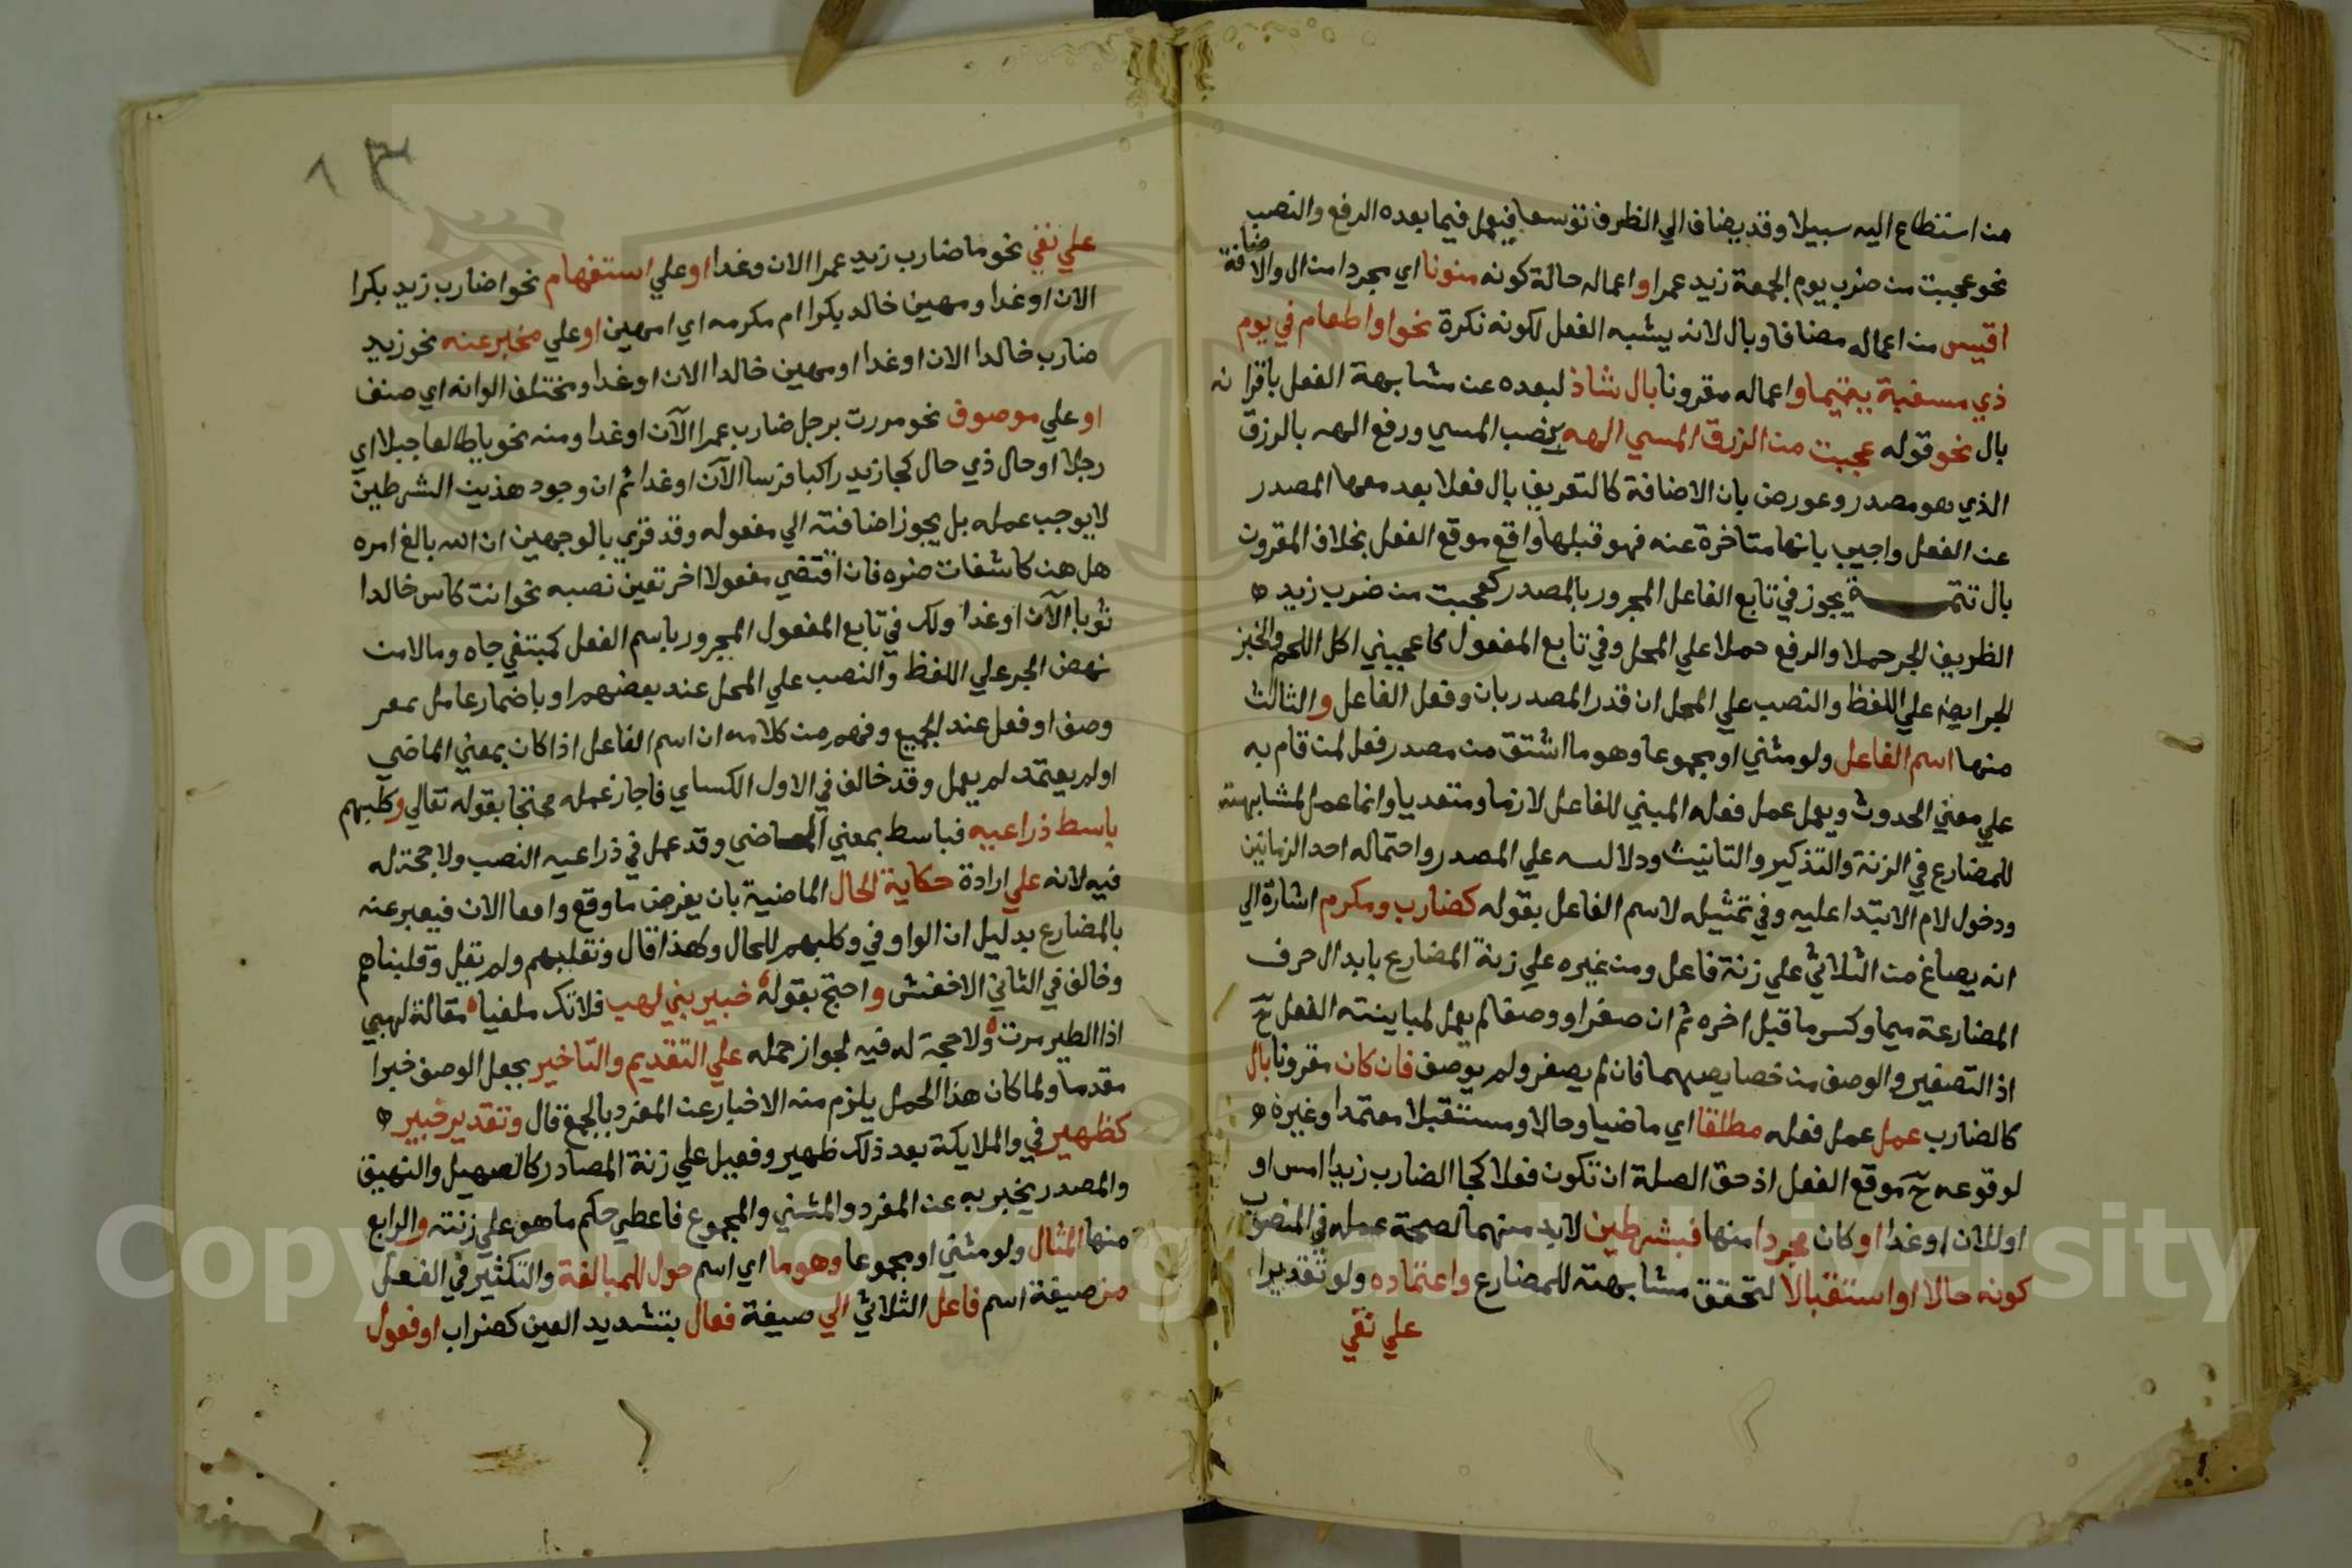 من استطاع اليه سبيلا وقد يضاف الي الظرف توسعا فيعمل فيما بعده الرفع والنصب
نحو عجبت من ضرب يوم الجمعة زيد عمرا واعماله حالة كونه منونا اي مجردا من ال والاضافة
اقيس من اعماله مضافا وبال لانه يشبه الفعل لكونه نكرة نحو او اطعام في يوم
ذي مسغبة يتيما واعماله مقرونا بال شاذ لبعده عن مشابهة الفعل باقترانه
بال نحو قوله عجبت من الرزق المسي الهه بنصب المسي ورفع الهه بالرزق
الذي هو مصدر وعورض بان الاضافة كالتعريف بال فعلا بعد معها المصدر
عن الفعل واجيب بانها متاخرة عنه فهو قبلها واقع موقع الفعل بخلاف المقرون
بال تتمة يجوز في تابع الفاعل المجرور بالمصدر كعجبت من ضرب زيد ه
الظريف الجر حملا والرفع حملا علي المحل وفي تابع المفعول كاعجبني اكل اللحم والخبز
الجر ايضا علي اللفظ والنصب علي المحل ان قدر المصدر بان وفعل الفاعل والثالث
منها اسم الفاعل ولو مثني او مجموعا وهو ما اشتق من مصدر فعل لمن قام به
علي معني الحدوث ويعمل عمل فعله المبني للفاعل لازما ومتعديا وانما عمل لمشابهته
للمضارع في الزنة والتذكير والتانيث ودلالسه علي المصدر واحتماله احد الزمانين
ودخول لام الابتدا عليه وفي تمثيله لاسم الفاعل بقوله كضارب ومكرم اشارة الي
انه يصاغ من الثلاثي علي زنة فاعل ومن غيره علي زنة المضارع بابدال حرف
المضارعة ميما وكسر ما قبل اخره ثم ان صغر او وصف لم يعمل لمباينته الفعل ح
اذ التصغير والوصف من خصايصهما فان لم يصغر ولم يوصف فان كان مقرونا بال
كالضارب عمل عمل فعله مطلقا اي ماضيا وحالا ومستقبلا معتمدا وغيره ه
لوقوعه ح موقع الفعل اذ حق الصلة ان تكون فعلا كجا الضارب زيدا امس او
او للان او غدا او كان مجردا منها فبشرطين لابد منهما لصحة عمله في المنصوب
كونه حالا او استقبالا لتحقق مشابهته للمضارع واعتماده ولو تقديرا
علي نفي
١٣
علي نفي نحو ما ضارب زيد عمرا الان وغدا او علي استفهام نحو اضارب زيد بكرا
الان او غدا ومهين خالد بكرا ام مكرمه اي امهين او علي مخبر عنه نحو زيد
ضارب خالدا الان او غدا او مهين خالدا الان او غدا ومختلف الوانه اي صنف
او علي موصوف نحو مررت برجل ضارب عمرا الآن او غدا ومنه نحو ياطالعا جبلا اي
رجلا او حال ذي حال كجا زيد راكبا فرسا الآن او غدا ثم ان وجود هذين الشرطين
لا يوجب عمله بل يجوز اضافته الي مفعوله وقد قري بالوجهين ان الله بالغ امره
هل هن كاشفات ضره فان اقتضي مفعولا اخر تعين نصبه نحو انت كاس خالدا
ثوبا الآن او غدا ولك في تابع المفعول المجرور باسم الفعل كمبتغي جاه ومالا من
نهض الجر علي اللفظ والنصب علي المحل عند بعضهم او باضمار عامل معر
وصف او فعل عند الجميع وفهم من كلامه ان اسم الفاعل اذا كان بمعني الماضي
او لم يعتمد لم يعمل وقد خالف في الاول الكساي فاجاز عمله محتجا بقوله تعالي وكلبهم
باسط ذراعيه فباسط بمعني الماضي وقد عمل في ذراعيه النصب ولا حجة له
فيه لانه علي ارادة حكاية الحال الماضية بان يفرض ما وقع واقعا الان فيعبر عنه
بالمضارع بدليل ان الواو في وكلبهم للحال وكهذا قال ونقلبهم ولم يقل وقلبناهم
وخالف في الثاني الاخفش واحتج بقوله ه خبير بني لهب فلا تك ملغيا ه مقالة لهبي
اذا الطير مرت ه ولا حجة له فيه لجواز حمله علي التقديم والتاخير بجعل الوصف خبرا
مقدما ولما كان هذا الحمل يلزم منه الاخبار عن المفرد بالجمع قال وتقدير خبير ه
كظهير في والملايكة بعد ذلك ظهير وفعيل علي زنة المصادر كالصهيل والنهيق
والمصدر يخبر به عن المفرد والمثني والمجموع فاعطي حكم ما هو علي زنته والرابع
منها المثال ولو مثني او مجموعا وهو ما اي اسم حول للمبالغة والتكثير في الفعل
من صيغة اسم فاعل الثلاثي الي صيغة فعال بتشديد العين كضراب او فعول
Copyright © King Saud University